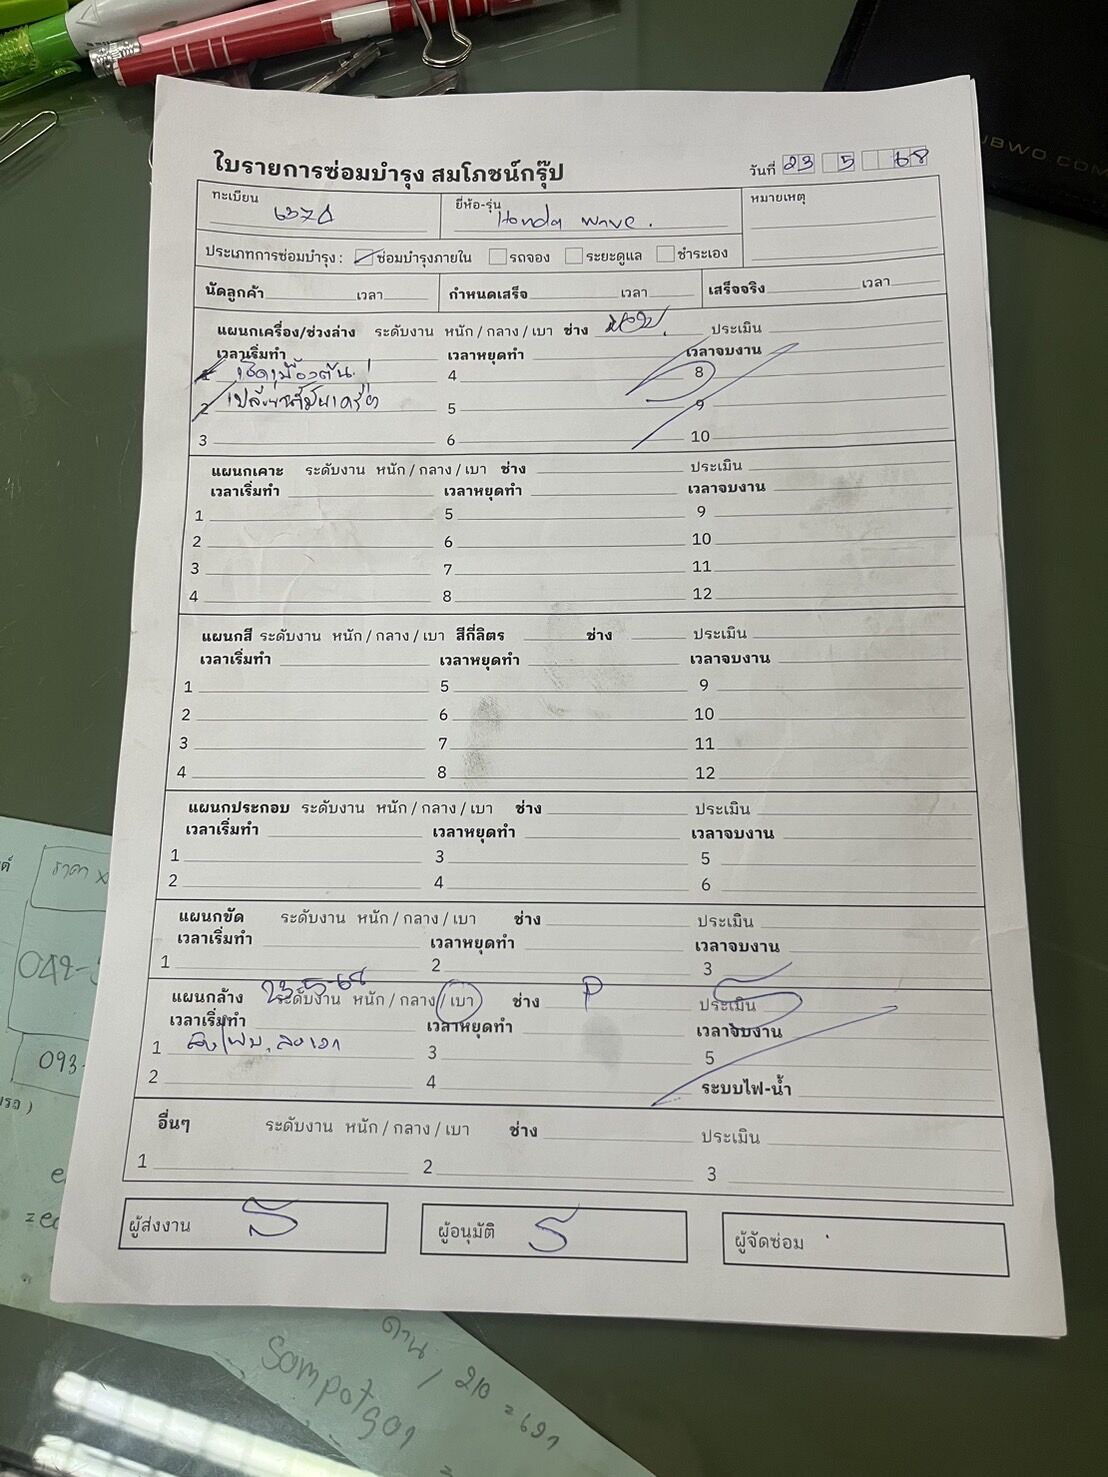 ใบรายการซ่อมบำรุง สมโภชน์กรุ๊ป
วันที่ 23 5 68
ทะเบียน
ยี่ห้อ-รุ่น Honda wave.
หมายเหตุ
ประเภทการซ่อมบำรุง : ซ่อมบำรุงภายใน รถจอง ระยะดูแล ชำระเอง
นัดลูกค้า เวลา กำหนดเสร็จ เวลา เสร็จจริง เวลา
แผนกเครื่อง/ช่วงล่าง ระดับงาน หนัก / กลาง / เบา ช่าง ประเมิน
เวลาเริ่มทำ เวลาหยุดทำ เวลาจบงาน
1 เช็คเบื้องต้น 4 8
2 5 9
3 6 10
แผนกเคาะ ระดับงาน หนัก / กลาง / เบา ช่าง ประเมิน
เวลาเริ่มทำ เวลาหยุดทำ เวลาจบงาน
1 5 9
2 6 10
3 7 11
4 8 12
แผนกสี ระดับงาน หนัก / กลาง / เบา สีกี่ลิตร ช่าง ประเมิน
เวลาเริ่มทำ เวลาหยุดทำ เวลาจบงาน
1 5 9
2 6 10
3 7 11
4 8 12
แผนกประกอบ ระดับงาน หนัก / กลาง / เบา ช่าง ประเมิน
เวลาเริ่มทำ เวลาหยุดทำ เวลาจบงาน
1 3 5
2 4 6
แผนกขัด ระดับงาน หนัก / กลาง / เบา ช่าง ประเมิน
เวลาเริ่มทำ เวลาหยุดทำ เวลาจบงาน
1 2 3
23-5-68
แผนกล้าง ระดับงาน หนัก / กลาง / เบา ช่าง P ประเมิน
เวลาเริ่มทำ เวลาหยุดทำ เวลาจบงาน
1 3 5
2 4 ระบบไฟ-น้ำ
อื่นๆ ระดับงาน หนัก / กลาง / เบา ช่าง ประเมิน
1 2 3
ผู้ส่งงาน
ผู้อนุมัติ
ผู้จัดซ่อม
ราคา
093-